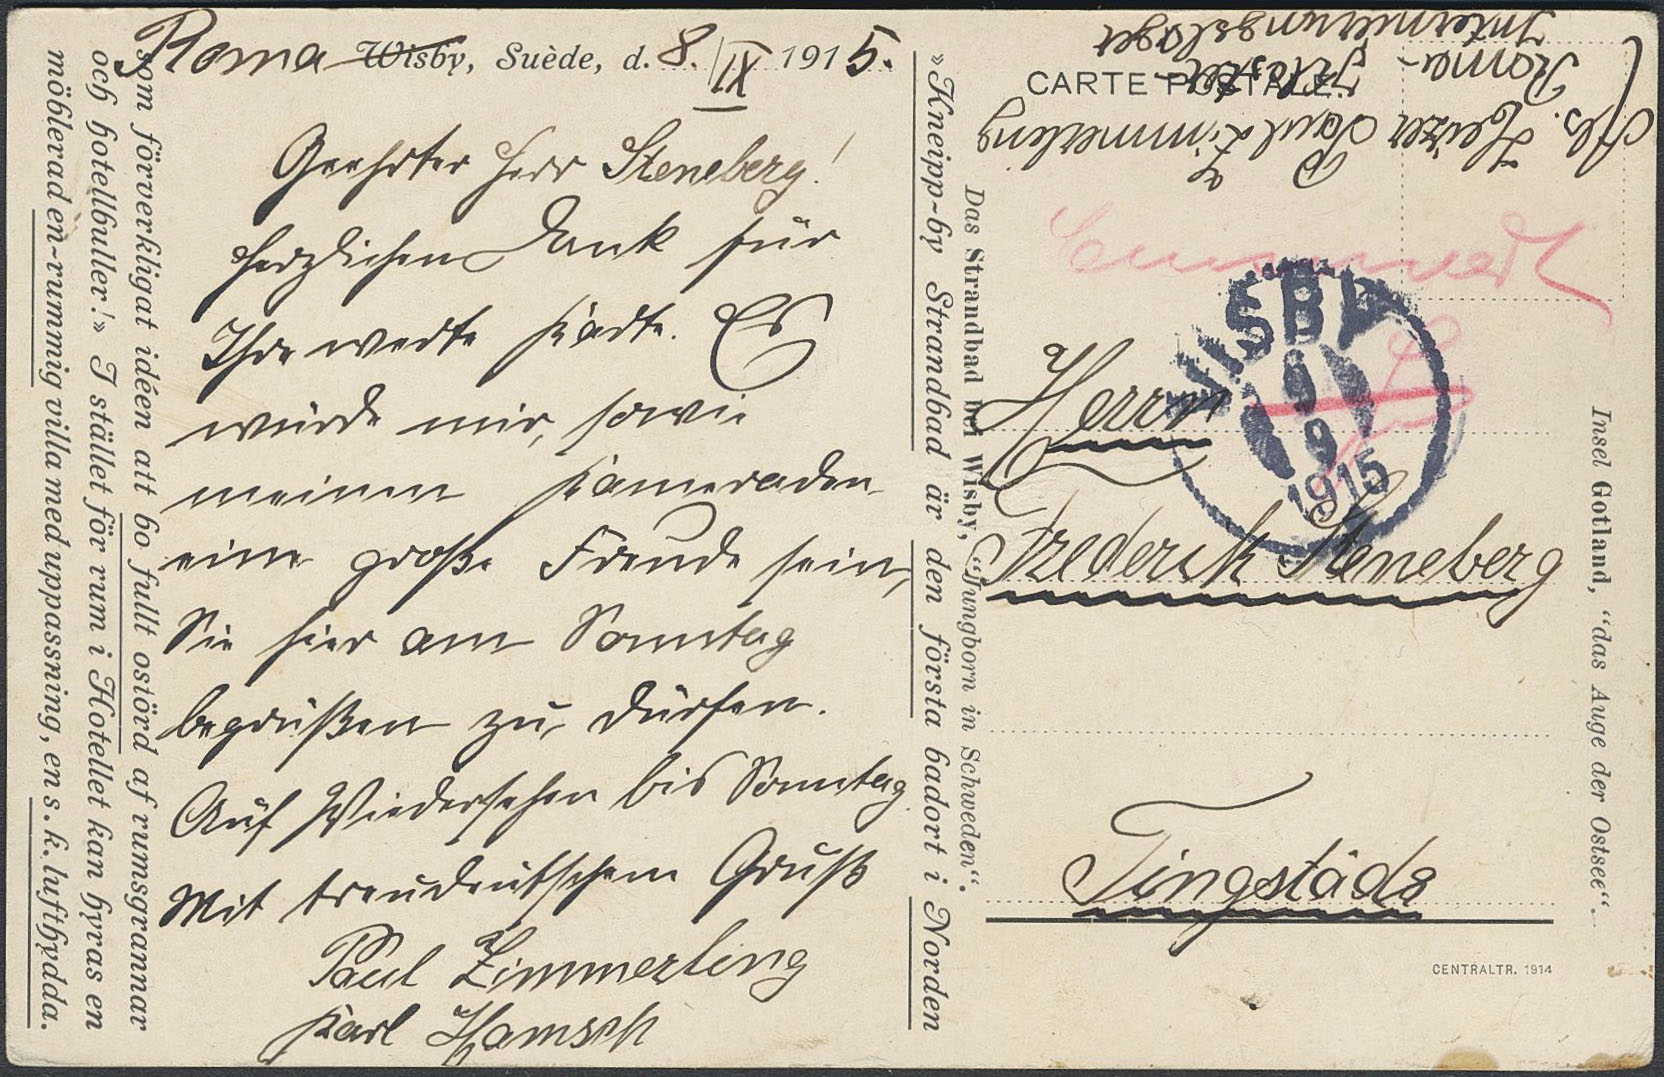 Roma Wisby, Suède, d. 8. IX 1915.
Geehrter Herr Steneberg!
herzlichen Dank für
Ihre werte Karte. Es
würde mir, sowie
meinen Kameraden
eine große Freude sein,
Sie hier am Sonntag
begrüßen zu dürfen.
Auf Wiedersehen bis Sonntag
Mit treudeutschem Gruß
Paul Zimmerling
Karl
»Kneipp-by Strandbad är den första badort i Norden
som förverkligat idéen att bo fullt ostörd af rumsgrannar
och hotellbuller!» I stället för rum i Hotellet kan hyras en
möblerad en-rummig villa med uppassning, en s. k. lufthydda.
Das Strandbad bei Wisby, “Jungborn in Schweden“.
CARTE POSTALE.
Abs. Heizer Paul Zimmerling
Roma-Kloster
Internierungslager
WISBY
9
9
1915
Herrn
Frederik Steneberg
Tingstäde
Insel Gotland, “das Auge der Ostsee“.
CENTRALTR. 1914